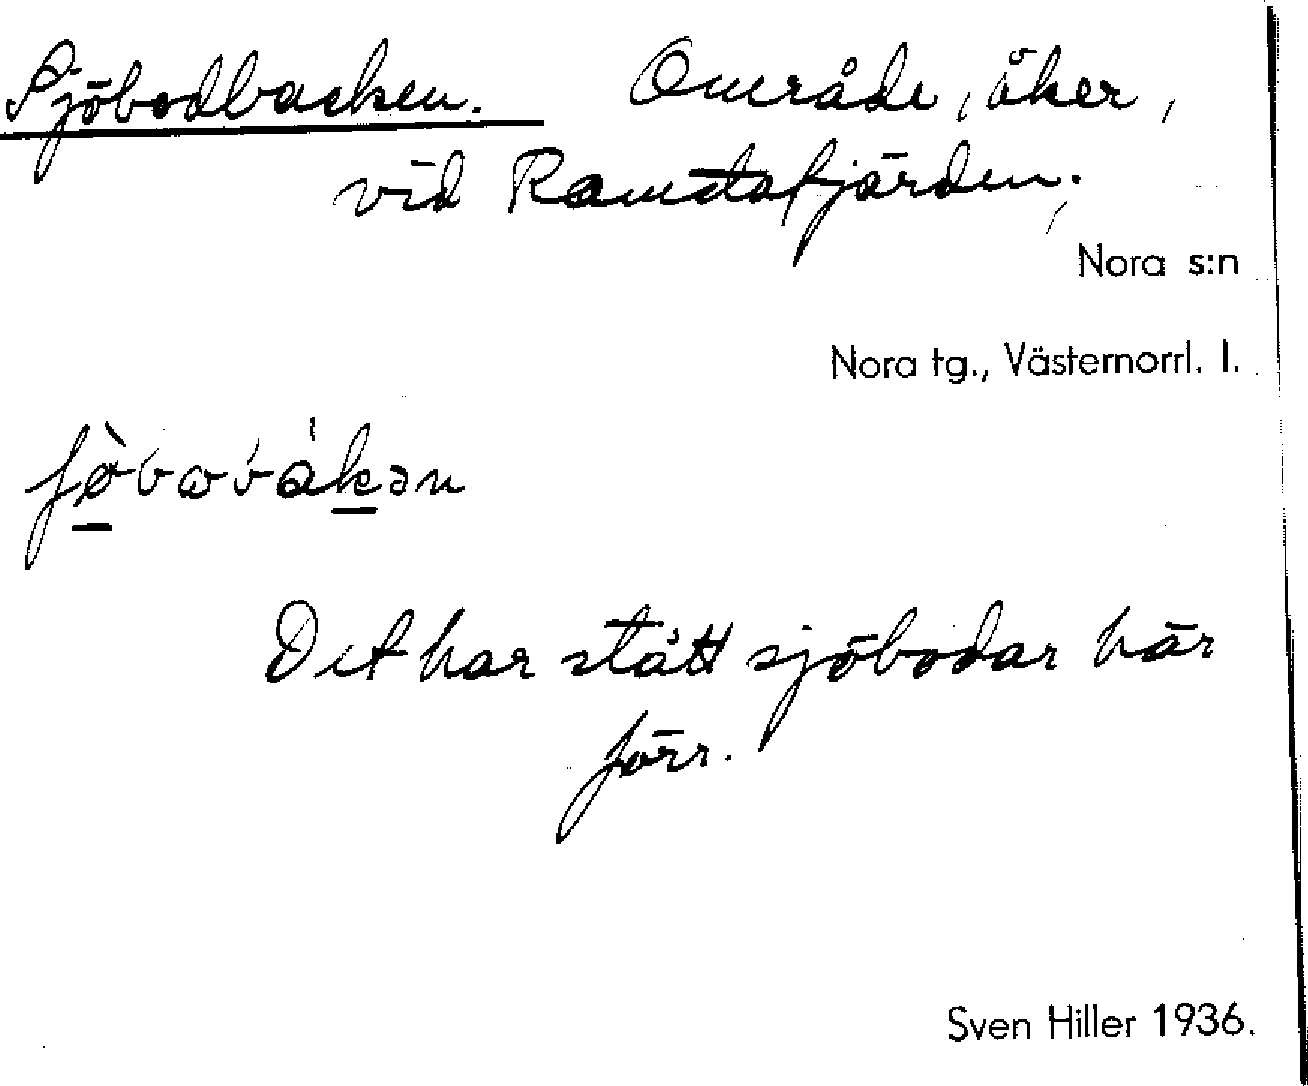 Sjöbodbacken. Område, åker,
vid Ramstafjärden.
Nora s:n
Nora tg., Västernorrl. l.
Det har stått sjöbodar här
förr.
Sven Hiller 1936.